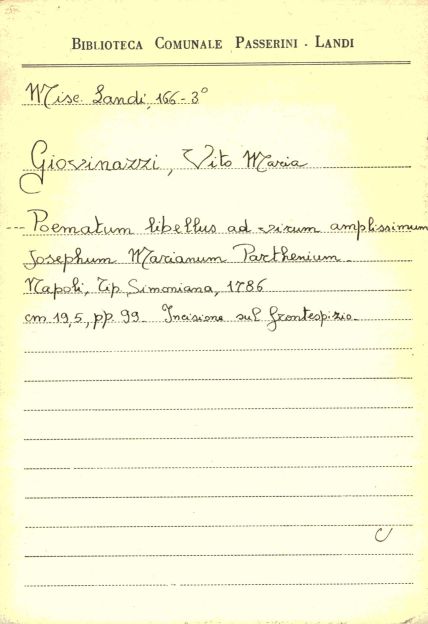 BIBLIOTECA COMUNALE PASSERINI - LANDI
Misc. Landi, 166-3°
Giovinazzi, Vito Maria
--- Poematum libellus ad virum amplissimum
Josephum Marianum Parthenium.
Napoli, Tip. Simoniana, 1786
cm 19,5, pp. 99. Incisione sul frontespizio.
C